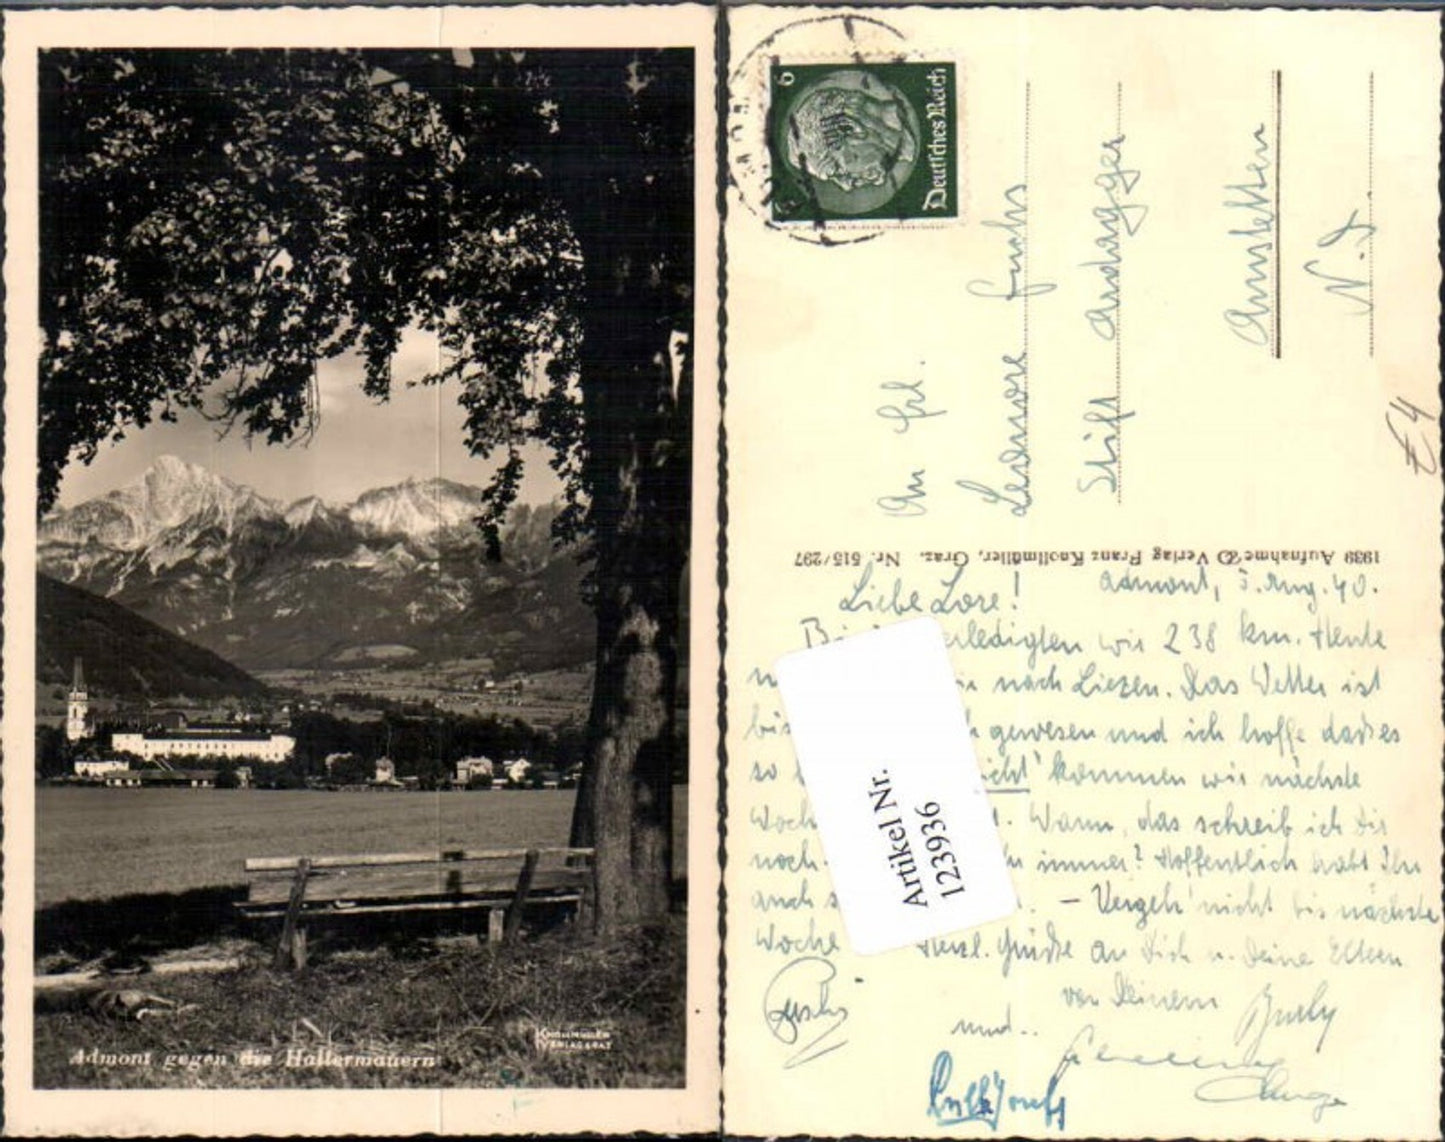 Admont gegen die Hallermauern
KNOLLMÜLLER
VERLAG GRAZ
6
Deutsches Reich
An Frl.
Leonore Fuchs
Stift Ardagger
Amstetten
N. D.
E4
1939 Aufnahme Verlag Franz Knollmüller, Graz. Nr. 515/297
Admont, 5. Aug. 40.
Liebe Lore!
erledigten wir 238 km. Heute
nach Liezen. Das Wetter ist
bis gewesen und ich hoffe dass es
so kommen wir nächste
Woch Wann, das schreib ich Dir
noch. immer? Hoffentlich habt Ihr
auch s – Vergeh' nicht bis nächste
Woche Herzl. Grüße an Dich u. Deine Eltern
von Deinem
und..
Artikel Nr.
123936